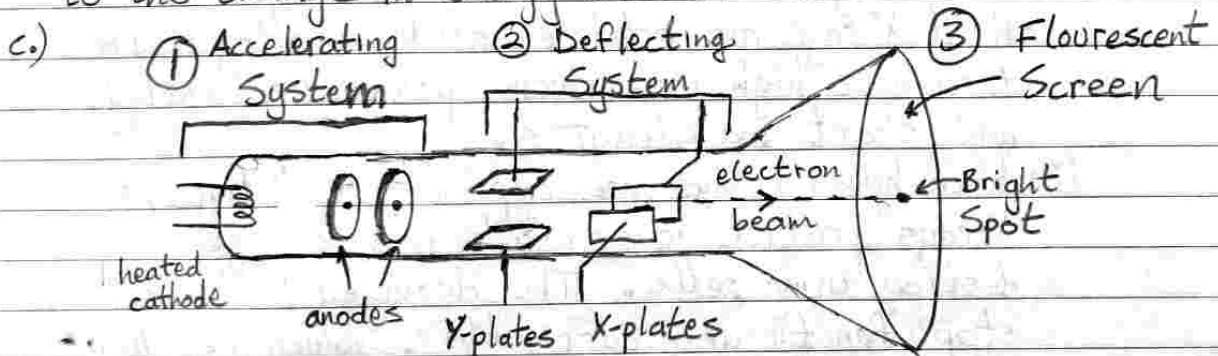 to the change in energy
c.) ① Accelerating System
② Deflecting System
③ Flourescent Screen
electron beam
Bright Spot
heated cathode
anodes
Y-plates
X-plates